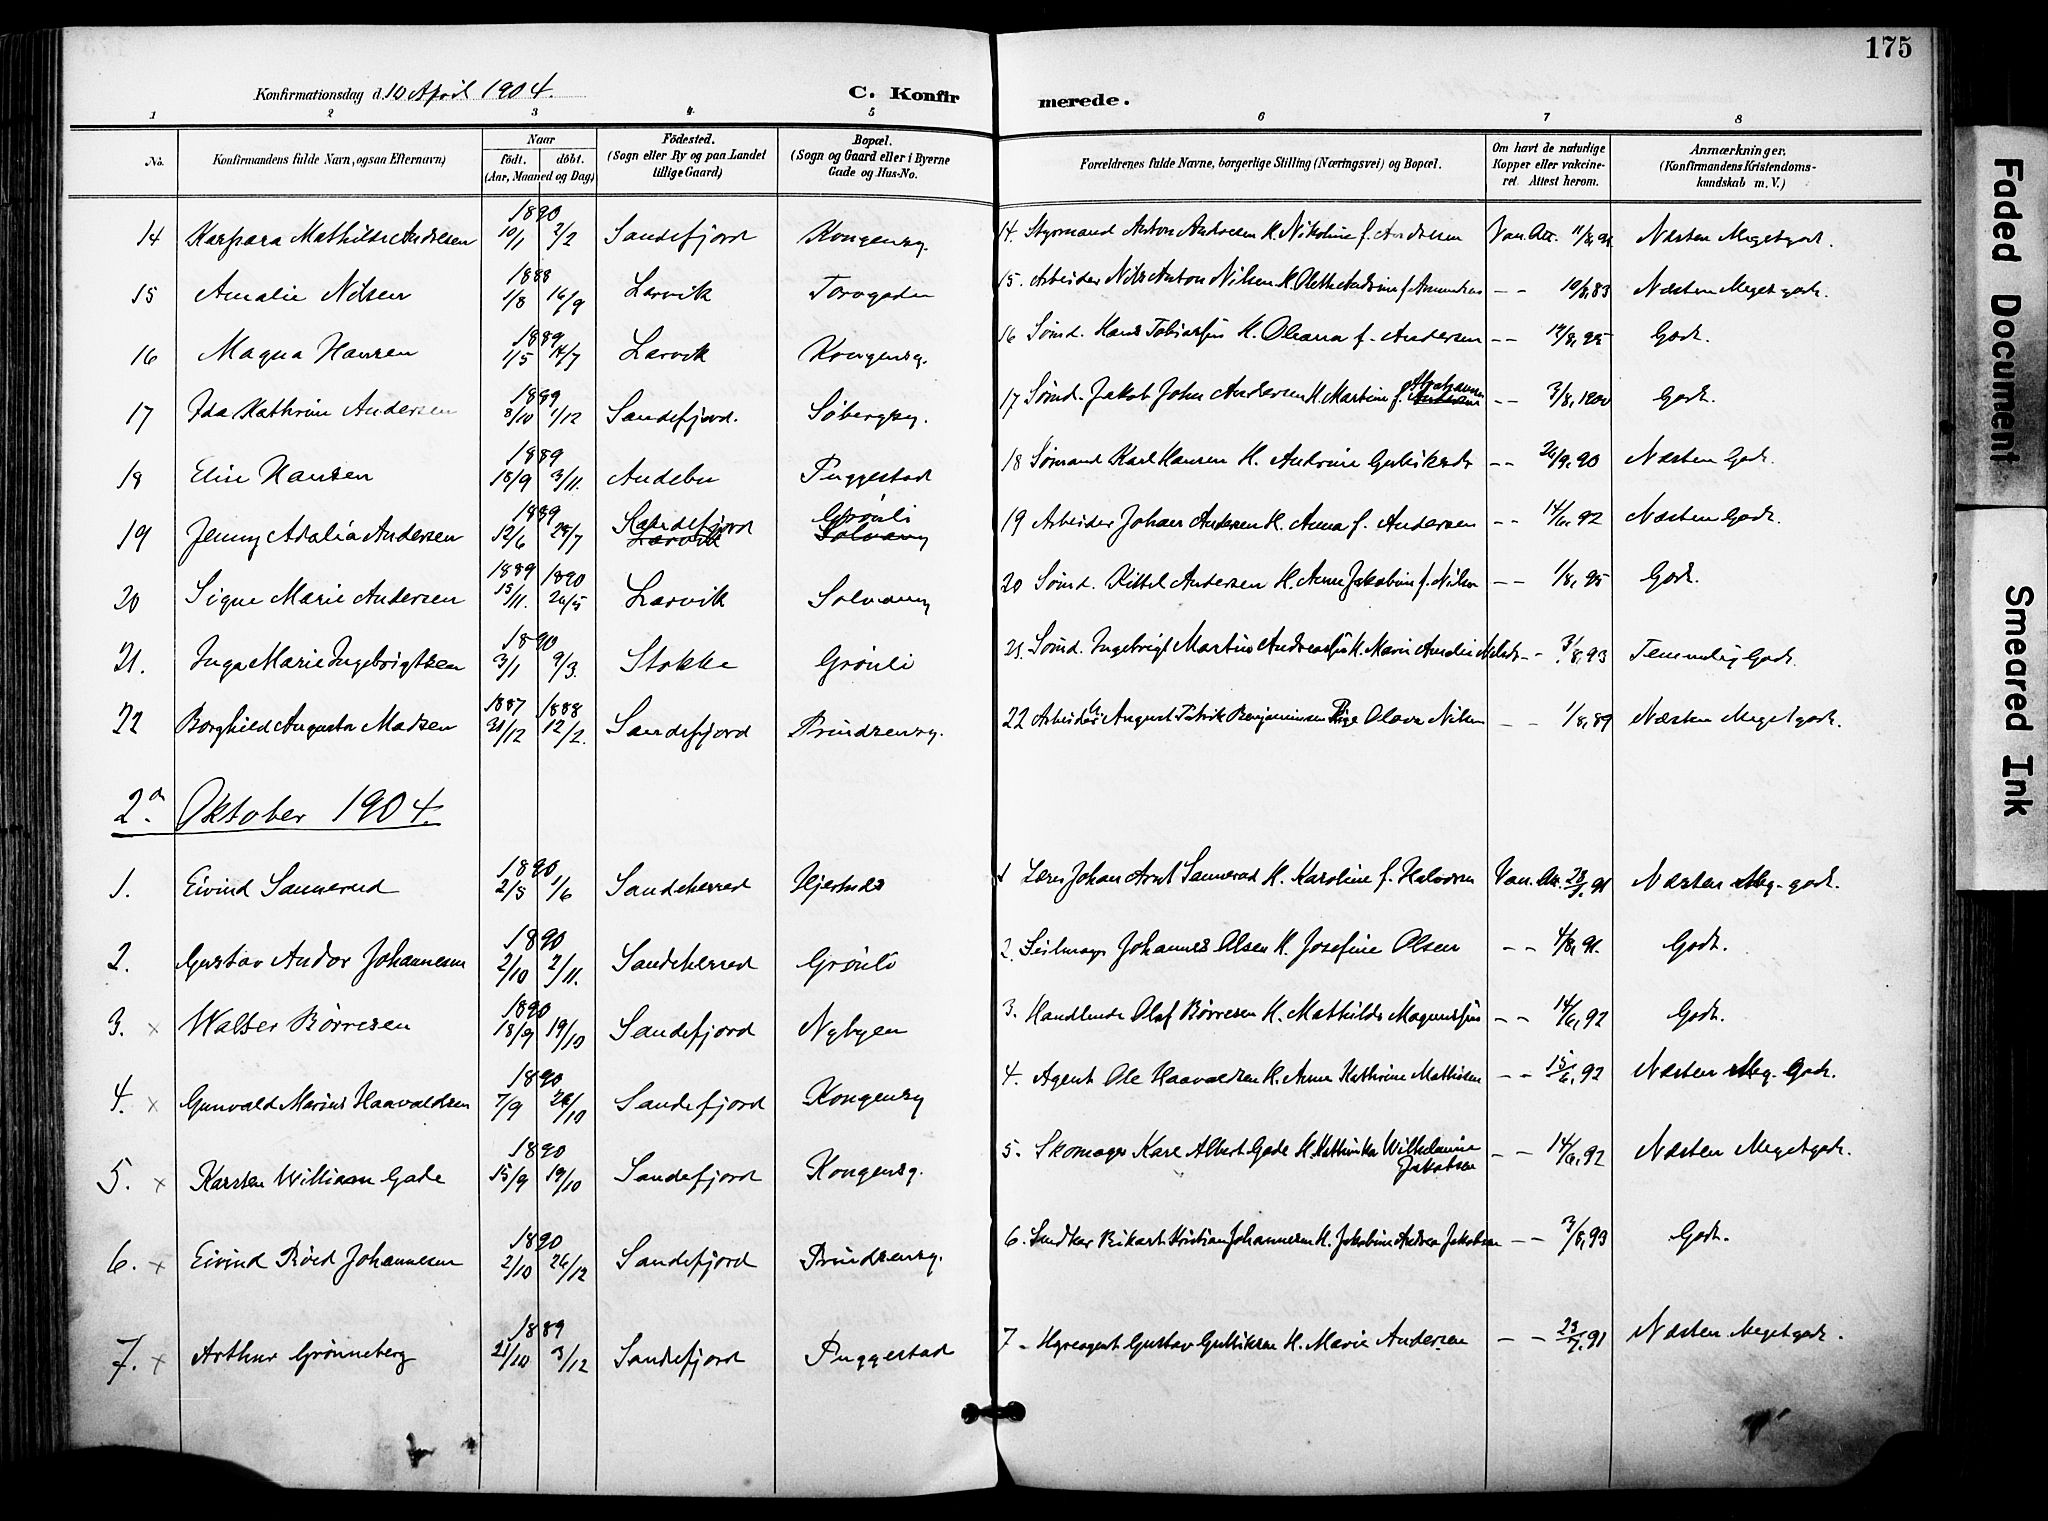 175
Konfirmationsdag d. 10 April 1904.
C. Konfirmerede.
1 2 3 4 5 6 7 8
No.
Konfirmandens fulde Navn, ogsaa Efternavn)
Naar
födt. döbt.
(Aar, Maaned og Dag)
Födested.
(Sogn eller By og paa Landet
tillige Gaard)
Bopæl.
(Sogn og Gaard eller i Byerne
Gade og Hus-No.
Forældrenes fulde Navne, borgerlige Stilling (Næringsvei) og Bopæl.
Om havt de naturlige
Kopper eller vakcine-
ret. Attest herom.
Anmærkninger,
(Konfirmandens Kristendoms-
kundskab m. V.)
14 Kaspara Mathilde Andresen 1890 10/1 2/2 Sandefjord Kongensg. 14. Styrmand Anton Andresen H. Nikoline f. Andresen Van. Att. 11/8,91 Næsten Meget godt.
15 Amalie Nilsen 1888 1/8 16/9 Larvik Torvgaden 15. Arbeider Nils Anton Nilsen H. f. -- 10/8,83 Næsten Meget godt.
16 Magna Hansen 1889 1/5 14/7 Larvik Kongensg. 16 Sömd. Hans H. Oleana f. Andersen -- 14/8,95 Godt.
17 Ida Kathrine Andersen 1889 8/10 1/12 Sandefjord. Söbergsg. 17 Sömd. Jakob John Andersen H. Martine f. Abrahamsen -- 3/8,1900 Godt.
18 Elin Hansen 1889 18/9 3/11. Andebu Puggestad 18 Sömand Karl Hansen H. Andrine -- 26/9,90 Næsten Godt.
19 Jenny Adalia Andersen 1889 12/6 28/7 Sandefjord Larvik Grönli Solvang 19 Arbeider Johan Andersen H. Anna f. Andersen -- 14/6,92 Næsten Godt.
20 Signe Marie Andersen 1889 15/11. 1890 26/5 Larvik Solvang 20 Sömd. Kittel Andersen H. Anne Jakobine f. Nilsen -- 1/8,95 Godt.
21. Inga Marie Ingebrigtsen 1890 3/1 9/3. Stokke Grönli 21. Sömd. Ingebrigt Martin H. Marie Amalie -- 3/8,93 Temmelig Godt.
22 Borghild Augusta Madsen 1887 31/12 1888 12/2. Sandefjord Prindsensg. 22 Arbeider August Benjaminsen Pige Olava Nilsen -- 1/8,89 Næsten Meget godt.
2den Oktober 1904.
1. Eivind Sannerud 1890 2/5 1/6 Sandeherred Hjertnes 1 Lærer Johan Arnt Sannerud H. Karoline f. Halvorsen Van. Att. 91 Næsten Meg. godt.
2. Gustav Andor Johannesen 1890 2/10 2/11. Sandeherred Grönli 2. Seilmager Johannes Olsen H. Josefine Olsen -- 4/8,91. Godt.
3. x Walter Börresen 1890 18/9 19/10 Sandefjord Nybyen 3. Handlende Olaf Börresen H. Mathilde -- 14/6,92 Godt.
4. x Gunvald Marius Haavaldsen 1890 7/9 26/10 Sandefjord Kongensg 4. Agent Ole Haavaldsen H. Anne Kathrine Mathisen -- 15/6,92 Næsten Meg. Godt.
5. x Karsten William Gade 1890 15/9 19/10 Sandefjord Kongensg. 5. Skomager Karl Albert Gade H. Kathinka Wilhelmine
Jakobsen -- 14/6,92 Næsten Meget godt.
6. x Eivind Röed Johannesen 1890 2/10 26/12 Sandefjord Prindsensg. 6. Snedker Rikart Kristian Johannesen H. Jakobine Andrea Jakobsen -- 3/8,93 Godt.
7. x Arthur Grönneberg 1889 21/10 3/12 Sandefjord Puggestad 7. Hyreagent Gustav Gulliksen H. Marie Andersen -- 91 Næsten Meget godt.
Faded Document
Smeared Ink